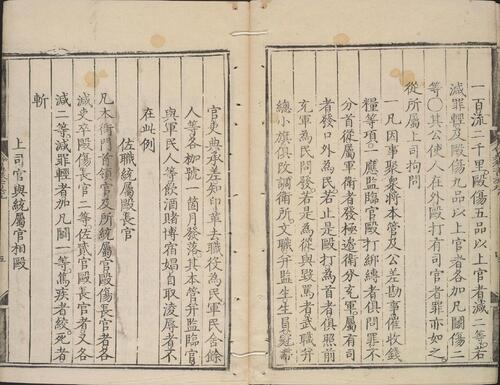 一百流二千里毆傷五品以上官者減二等若
減罪輕及毆傷九品以上官者各加凡鬬傷二
等○其公使人在外毆打有司官者罪亦如之
從所屬上司拘問
一凡因事聚衆將本管及公差勘事催收錢
糧等項一應監臨官毆打綁縛者俱問罪不
分首從屬軍衛者發極邊衛分充軍屬有司
者發口外為民若止是毆打為首者俱照前
充軍為民問發若是為從與毀罵者武職并
總小旗俱改調衛所文職并監生生員冠帶
官吏典承差知印革去職役為民軍民舍餘
人等各枷號一箇月發落其本管并監臨官
與軍民人等飲酒賭博宿娼自取凌辱者不
在此例
佐職統屬毆長官
凡本衙門首領官及所統屬官毆傷長官者各
減吏卒毆傷長官二等佐貳官毆長官者又各
減二等減罪輕者加凡鬬一等篤疾者絞死者
斬
上司官與統屬官相毆